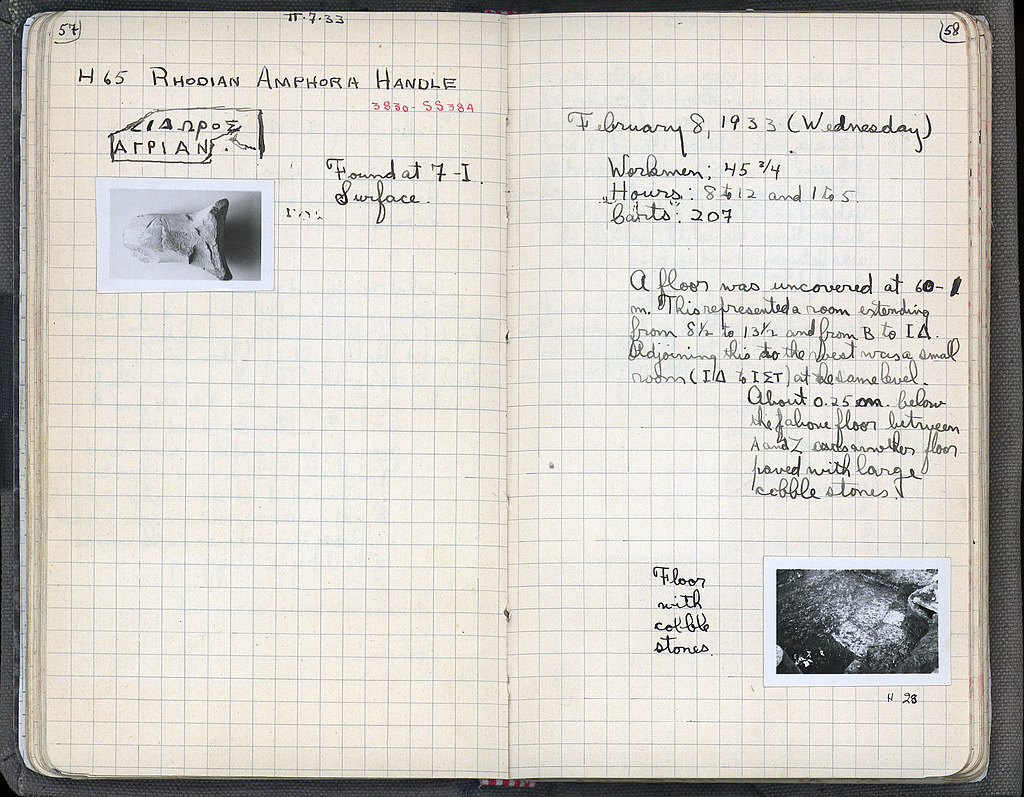 57
II.7.33
H 65 RHODIAN AMPHORA HANDLE
3830-SS384
ΣΙΔΩΡΟΣ
ΑΓΡΙΑΝ
Found at 7-I.
Surface.
58
February 8, 1933 (Wednesday)
Workmen; 45 3/4
Hours: 8 to 12 and 1 to 5.
Carts: 207
A floor was uncovered at 60-1
m. This represented a room extending
from 8½ to 13½ and from B to IΔ.
Adjoining this to the west was a small
room (IΔ to IΣΤ) at the same level.
About 0.25 m. below
the above floor between
A and Z another floor
paved with large
cobble stones.
Floor
with
cobble
stones.
H 23